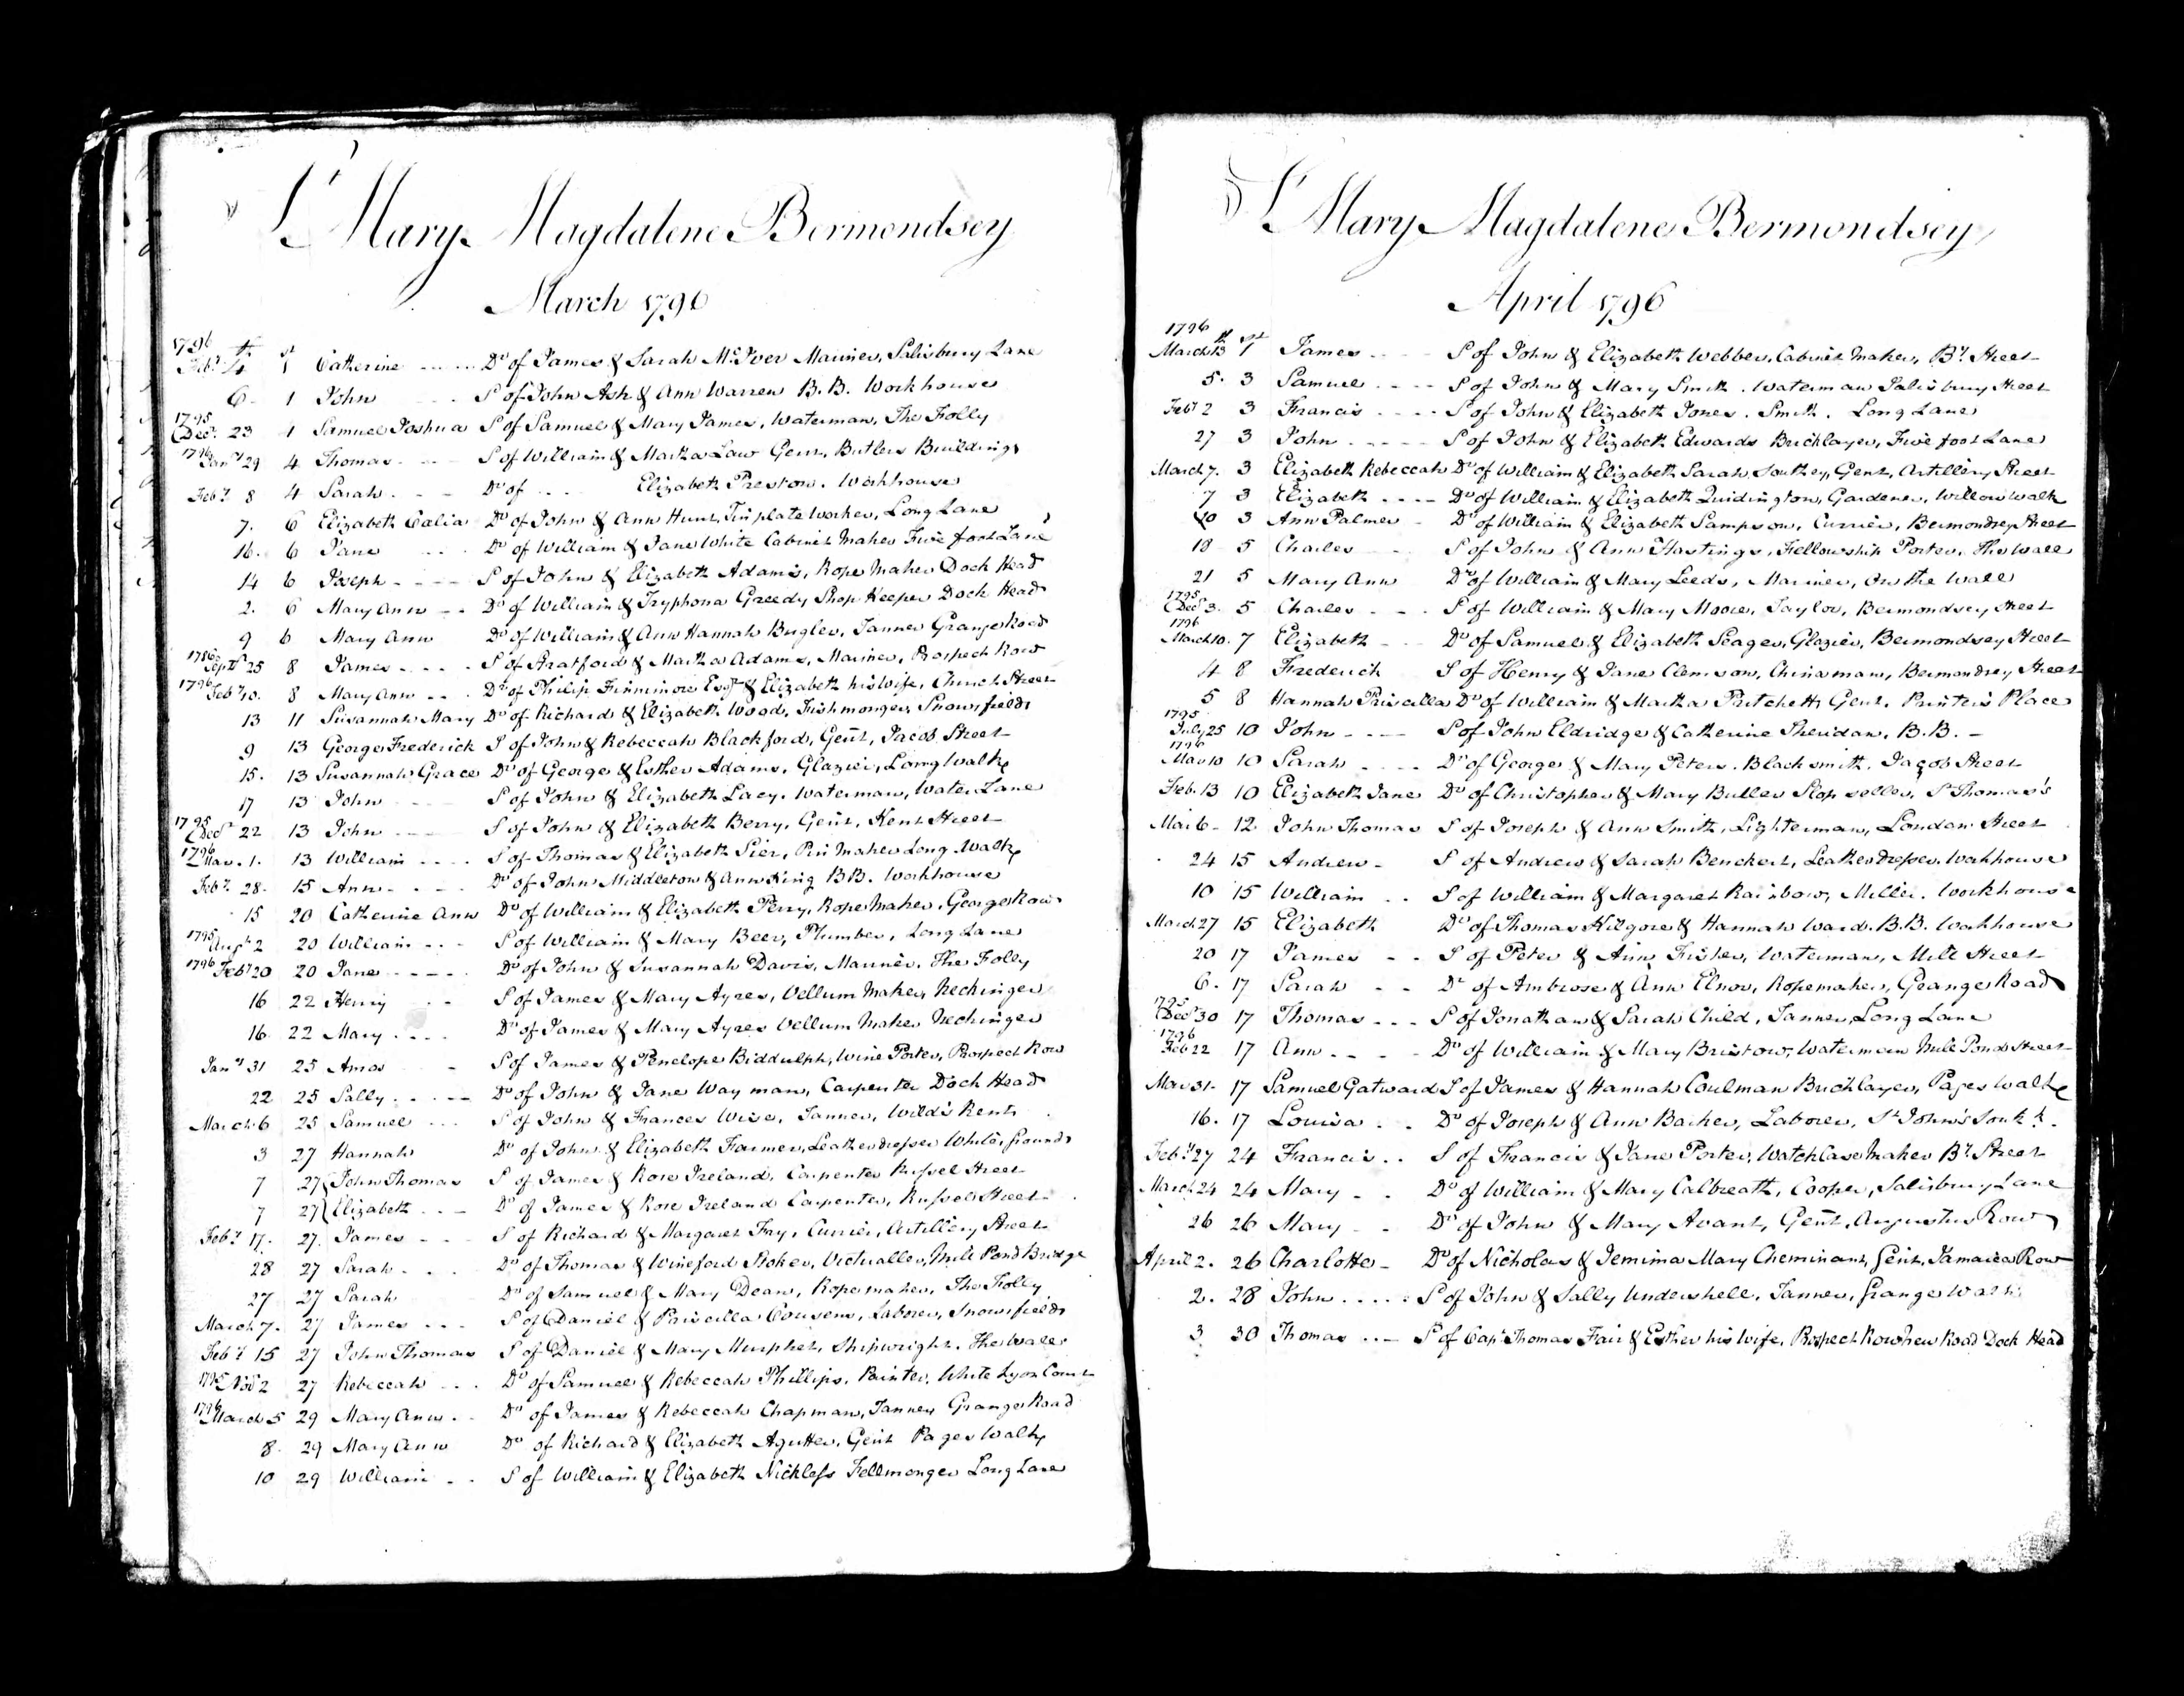 St Mary Magdalene Bermondsey
March 1796
1796
Feby 4th 1st Catherine Dr of James & Sarah McIver Mariner, Salisbury Lane
6 1 John S of John Ash & Ann Warren B.B. Workhouse
1795
Decr 23 1 Samuel Joshua S of Samuel & Mary James, Waterman, The Folly
1796
Jany 29 4 Thomas S of William & Martha Law Gent, Butlers Buildings
Feby 8 4 Sarah Dr of Elizabeth Preston. Workhouse
7. 6 Elizabeth Calia Dr of John & Ann Hunt, Tin plate worker, Long Lane
16. 6 Jane Dr of William & Jane White Cabinet Maker Five foot Lane
14 6 Joseph S of John & Elizabeth Adams, Rope Maker Dock Head
2. 6 Mary Ann Dr of William & Tryphona Greedy Shop Keeper Dock Head
9 6 Mary Ann Dr of William & Ann Hannah Bugler, Tanner Grange Road
1786
Septr 25 8 James S of Stratford & Martha Adams, Mariner, Prospect Row
1796
Feby 10. 8 Mary Ann Dr of Philip Finnimore Esqr & Elizabeth his Wife, Church Street
13 11 Susannah Mary Dr of Richard & Elizabeth Wood, Fishmonger, Snowsfields
9 13 George Frederick S of John & Rebeccah Blackford, Gent, Jacob Street
15. 13 Susannah Grace Dr of George & Esther Adams, Glazier, Long Walk
17 13 John S of John & Elizabeth Lacy. Waterman, Water Lane
1795
Decr 22 13 John S of John & Elizabeth Berry, Gent, Kent Street
1796
Mar. 1. 13 William S of Thomas & Elizabeth Pier, Pin Maker Long Walk
Feby 28. 15 Ann Dr of John Middleton & Ann King B.B. Workhouse
15 20 Catherine Ann Dr of William & Elizabeth Perry, Rope Maker, George Row
1795
Augt 2 20 William S of William & Mary Beer, Plumber, Long Lane
1796 Feby 20 20 Jane Dr of John & Susannah Davis, Mariner, The Folly
16 22 Henry S of James & Mary Ayres, Vellum Maker, Neckinger
16. 22 Mary Dr of James & Mary Ayres Vellum Maker Neckinger
Jany 31 25 Amos S of James & Penelope Biddulph, Wine Porter, Prospect Row
22 25 Sally Dr of John & Jane Wayman, Carpenter Dock Head
March 6 25 Samuel S of John & Frances Wise, Tanner, Wild's Rents
3 27 Hannah Dr of John & Elizabeth Farmer, Leatherdresser Whites Grounds
7 27 John Thomas S of James & Rose Ireland, Carpenter Russel Street
7 27 Elizabeth Dr of James & Rose Ireland Carpenter, Russel Street
Feby 17. 27. James S of Richard & Margaret Fry, Currier, Artillery Street
28 27 Sarah Dr of Thomas & Wineford Stoker, Victualler, Mill Pond Bridge
27 27 Sarah Dr of Samuel & Mary Dean, Ropemaker, The Folly
March 7. 27 James S of Daniel & Priscilla Cousens, Laborer, Snowsfields
Feby 15 27 John Thomas S of Daniel & Mary Murphet, Shipwright. The Wall
1795 Novr 2 27 Rebeccah Dr of Samuel & Rebeccah Phillips, Painter, White Lyon Court
1796
March 5 29 Mary Ann Dr of James & Rebeccah Chapman, Tanner Grange Road
8. 29 Mary Ann Dr of Richard & Elizabeth Agutter, Gent Pages Walk
10 29 William S of William & Elizabeth Nickless Fellmonger Long Lane
St Mary Magdalene Bermondsey
April 1796
1796
March 13th 1st James S of John & Elizabeth Webber, Cabinet Maker, By Street
5. 3 Samuel S of John & Mary Smith. Waterman Salisbury Street
Feby 2 3 Francis S of John & Elizabeth Jones. Smith. Long Lane
27 3 John S of John & Elizabeth Edwards Bricklayer, Five foot Lane
March 7. 3 Elizabeth Rebeccah Dr of William & Elizabeth Sarah Southey, Gent, Artillery Street
7 3 Elizabeth Dr of William & Elizabeth Quidington, Gardener, Willow Walk
20 3 Ann Palmer Dr of William & Elizabeth Sampson, Currier, Bermondsey Street
18 5 Charles S of John & Ann Hastings, Fellowship Porter, The Wall
21 5 Mary Ann Dr of William & Mary Leeds, Mariner, On the Wall
1795
Decr 3. 5 Charles S of William & Mary Moore, Taylor, Bermondsey Street
1796
March 10. 7 Elizabeth Dr of Samuel & Elizabeth Seager, Glazier, Bermondsey Street
4 8 Frederick S of Henry & Jane Clemson, Chinaman, Bermondsey Street
5 8 Hannah Priscilla Dr of William & Martha Pritchett Gent. Printers Place
1795
July 25 10 John S of John Eldridge & Catherine Sheridan, B.B.
1796
Mar 10 10 Sarah Dr of George & Mary Peters. Blacksmith. Jacob Street
Feb. 13 10 Elizabeth Jane Dr of Christopher & Mary Butler Slop seller, St Thomas's
Mar 6 12 John Thomas S of Joseph & Ann Smith, Lighterman, London Street
24 15 Andrew S of Andrew & Sarah Benchert, Leather dresser. Workhouse
10 15 William S of William & Margaret Rainbow, Miller. Workhouse
March 27 15 Elizabeth Dr of Thomas Kilgore & Hannah Ward. B.B. Workhouse
20 17 James S of Peter & Ann Fisher, Waterman, Mill Street
6. 17 Sarah Dr of Ambrose & Ann Elnor, Ropemaker, Grange Road
1795
Decr 30 17 Thomas S of Jonathan & Sarah Child, Tanner, Long Lane
1796
Feb 22 17 Ann Dr of William & Mary Bristow, Waterman Mill Pond Street
Mar 31. 17 Samuel Gatward S of James & Hannah Coulman Bricklayer, Pages Walk
16. 17 Louisa Dr of Joseph & Ann Barker, Laborer, St John's South k.
Feby 27 24 Francis S of Francis & Jane Porter, Watch Case Maker By Street
March 24 24 Mary Dr of William & Mary Calbreath, Cooper, Salisbury Lane
26 26 Mary Dr of John & Mary Avant, Gent, Augustus Row
April 2. 26 Charlotte Dr of Nicholas & Jemima Mary Cheminant, Gent, Jamaica Row
2. 28 John S of John & Sally Undershell, Tanner, Grange Walk
3 30 Thomas S of Capt Thomas Fair & Esther his Wife, Prospect Row New Road Dock Head